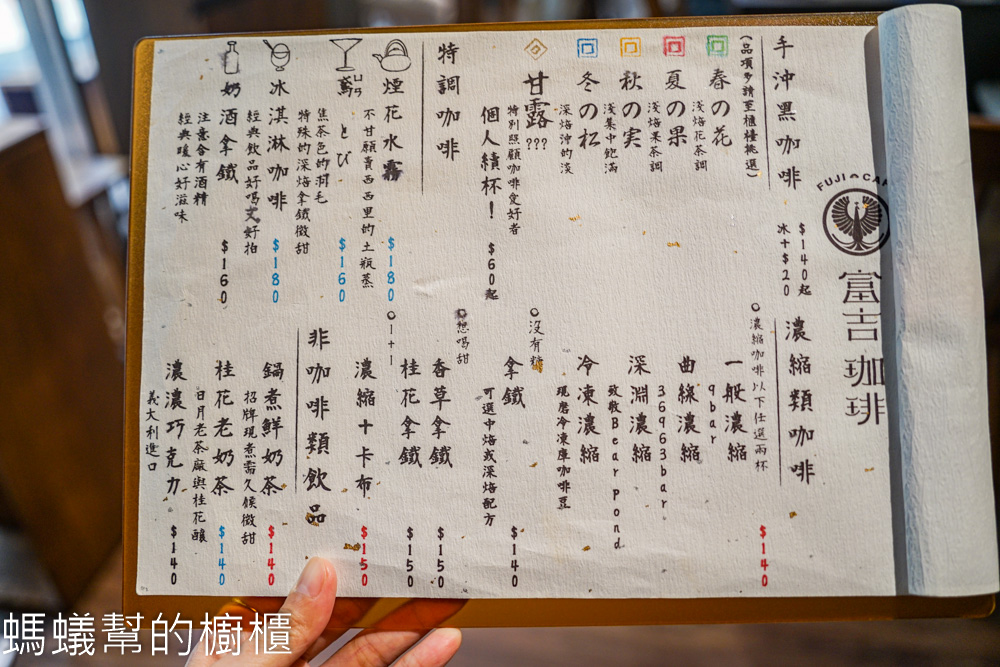 FUJI CAF
富吉珈琲
手沖黑咖啡
$140起
冰+$20
(品項多請至櫃檯挑選)
春の花
淺焙花茶調
夏の果
淺焙果茶調
秋の実
淺焙集中飽滿
冬の松
深焙沖的淡
甘露???
特別照顧咖啡愛好者
個人績杯!
$60起
特調咖啡
煙花水霧
不甘願賣西西里的土瓶蒸
$180
鳶 ㄩㄢ
とび
焦茶色的羽毛
特殊的深焙拿鐵微甜
$160
冰淇淋咖啡
經典飲品好喝又好拍
$180
奶酒拿鐵
注意含有酒精
經典暖心好滋味
$160
濃縮類咖啡
濃縮咖啡以下任選兩杯
$140
一般濃縮
9bar
曲線濃縮
36963bar
深淵濃縮
致敬Bearpond
冷凍濃縮
現磨冷凍庫咖啡豆
沒有糖
拿鐵
可選中焙或深焙配方
$140
想喝甜
香草拿鐵
$150
桂花拿鐵
$150
1+1
濃縮+卡布
$150
非咖啡類飲品
鍋煮鮮奶茶
招牌現煮需久候微甜
$140
桂花老奶茶
日月老茶廠與桂花釀
$140
濃濃巧克力
義大利進口
$140
螞蟻幫的櫥櫃